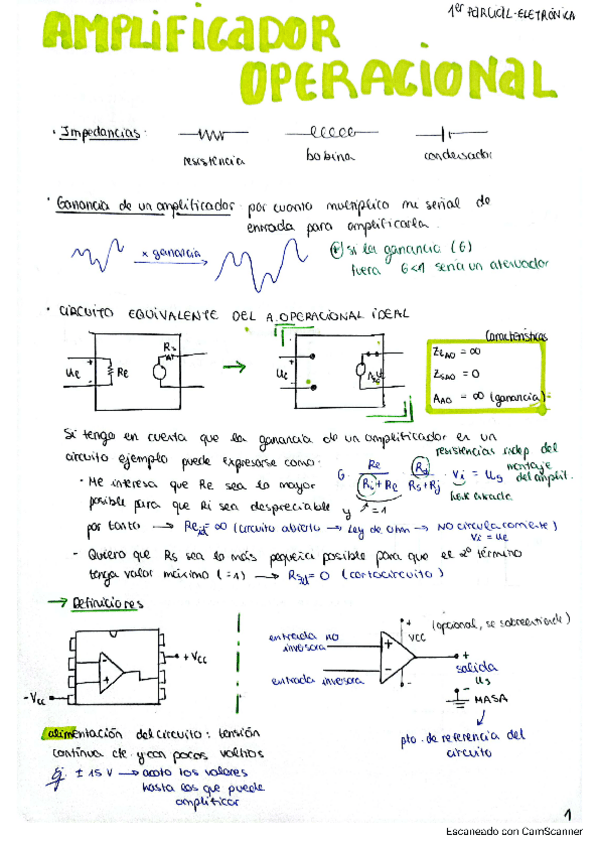 1er PARCIAL-ELETRÓNICA
AMPLIFICADOR
OPERACIONAL
· Impedancias:
resistencia
bobina
condensador
· Ganancia de un amplificador: por cuanto multiplico mi señal de
entrada para amplificarla.
x ganancia
si la ganancia (G)
fuera G<1 sería un atenuador
· CIRCUITO EQUIVALENTE DEL A.OPERACIONAL IDEAL
Características
Ue
Re
Rs
Ue
ZeAO = ∞
ZSAO = 0
AAO = ∞ (ganancia)
Si tengo en cuenta que la ganancia de un amplificador en un
circuito ejemplo puede expresarse como:
resistencias indep del
montaje
del amplif.
G · Re / (Ri + Re) · Rj / (Rs + Rj) · Vi = Us
· Me interesa que Re sea lo mayor
posible para que Ri sea despreciable y
=1
por tanto → Reid = ∞ (circuito abierto → Ley de Ohm → NO circula corriente)
Vi = Ue
- Quiero que Rs sea lo más pequeña posible para que el 2º término
tenga valor máximo (=1) → Rsid = 0 (cortocircuito)
→ Definiciones
+ Vcc
- Vcc
entrada no
inversora
entrada inversora
+
VCC
(opcional, se sobreentiende)
-
salida
Us
MASA
pto. de referencia del
circuito
alimentación del circuito: tensión
continua cte y con pocos voltios
Ej. ± 15 V → acoto los valores
hasta los que puede
amplificar
1
Escaneado con CamScanner